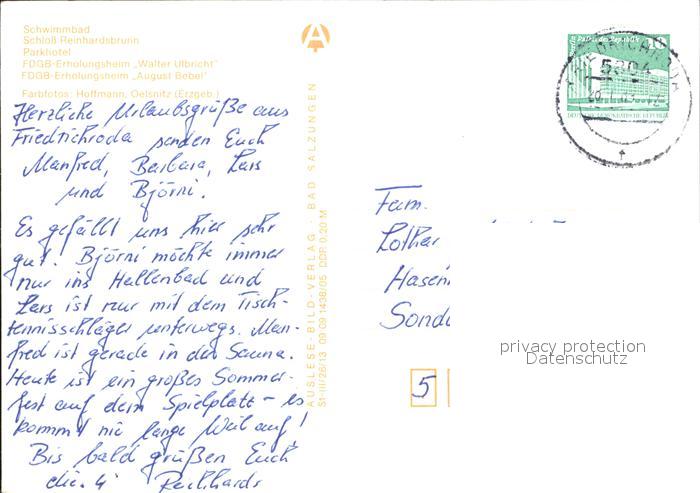 Schwimmbad
Schloß Reinhardsbrunn
Parkhotel
FDGB-Erholungsheim „Walter Ulbricht"
FDGB-Erholungsheim „August Bebel"
Farbfotos: Hoffmann, Oelsnitz (Erzgeb.)
Herzliche Urlaubsgrüße aus
Friedrichroda senden Euch
Manfred, Barbara, Lars
und Björni.
Es gefällt uns hier sehr
gut. Björni möchte immer
nur ins Hallenbad und
Lars ist nur mit dem Tisch-
tennisschläger unterwegs. Man-
fred ist gerade in der Sauna.
Heute ist ein großes Sommer-
fest auf dem Spielplatz – es
kommt nie lange Weil auf!
Bis bald grüßen Euch
die 4
AUSLESE-BILD-VERLAG · BAD SALZUNGEN
St-III/26/13 09 09 1438/05 DDR 0,20 M
A
Berlin, Palast der Republik
10
FRIEDRICHRODA
5804
Fam.
Lothar
5
privacy protection
Datenschutz